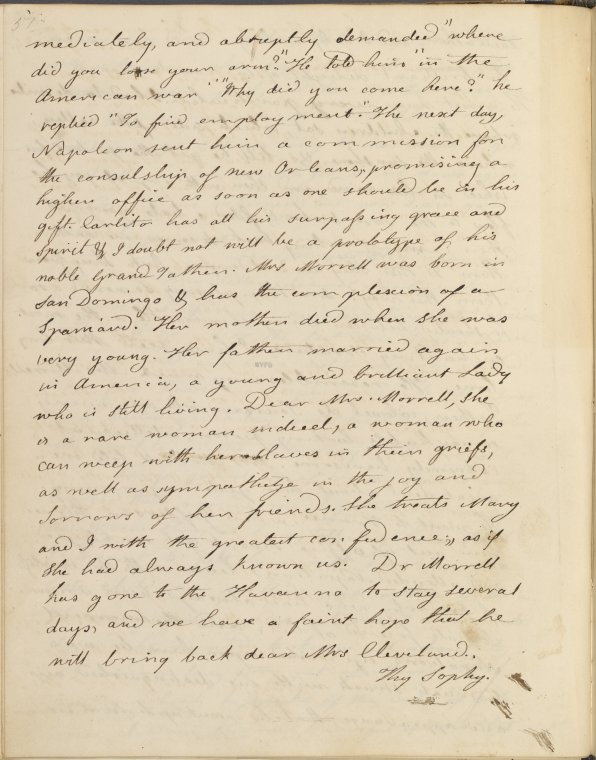 57
mediately, and abruptly demanded "where
did you lose your arm?" He told him "in the
American war" "Why did you come here?" he
replied "To find employment." The next day,
Napoleon sent him a commission for
the consulship of new Orleans, promising a
higher office as soon as one should be in his
gift. Carlito has all his surpassing grace and
spirit & I doubt not will be a prototype of his
noble Grand Father. Mrs Morrell was born in
San Domingo & has the complexion of a
Spaniard. Her mother died when she was
very young. Her father married again
in America, a young and brilliant Lady
who is still living. Dear Mrs. Morrell, she
is a rare woman indeed, a woman who
can weep with her slaves in their griefs,
as well as sympathize in the joy and
sorrows of her friends. She treats Mary
and I with the greatest confidence, as if
she had always known us. Dr Morrell
has gone to the Havanna to stay several
days, and we have a faint hope that he
will bring back dear Mrs Cleveland.
Thy Sophy.